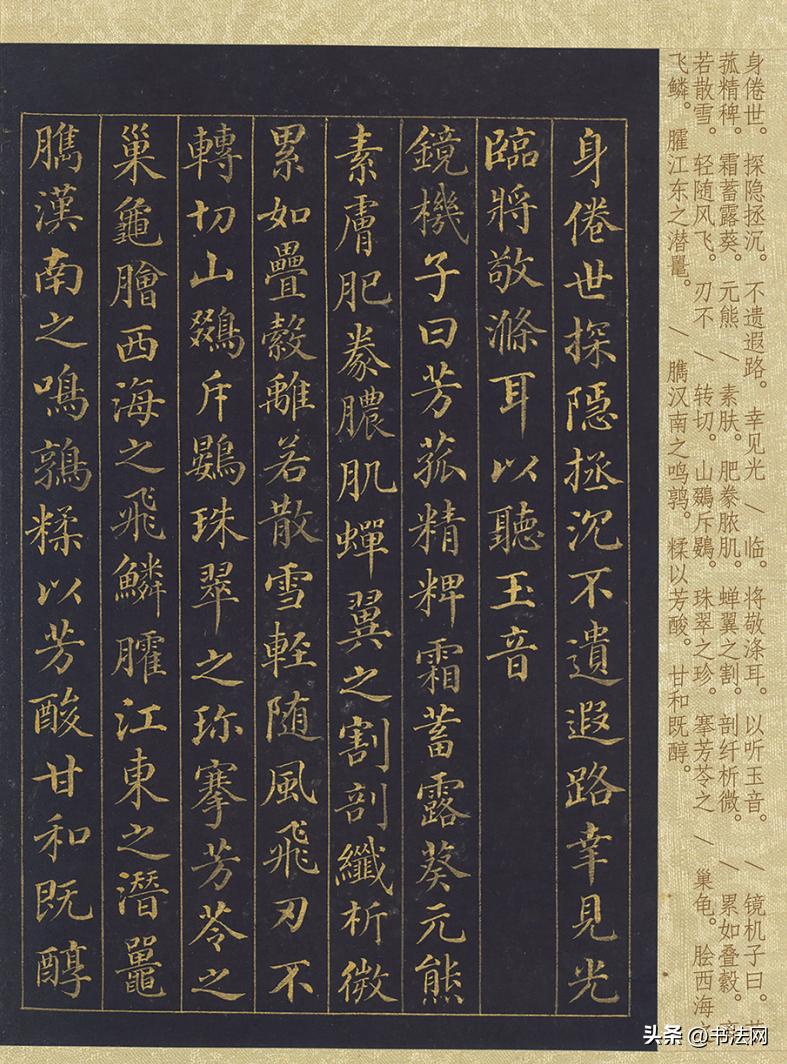 身倦世。探隐拯沉。不遗遐路。幸见光 / 临。将敬涤耳。以听玉音。 / 镜机子曰。
菰精稗。霜蓄露葵。元熊 / 素肤。肥豢脓肌。蝉翼之割。剖纤析微。 / 累如叠縠。
若散雪。轻随风飞。刃不 / 转切。山鵽斥鷃。珠翠之珍。搴芳苓之 / 巢龟。脍西海之
飞鳞。臛江东之潜鼍。 / 臇汉南之鸣鹑。糅以芳酸。甘和既醇。
身倦世探隱拯沉不遺遐路幸見光
臨將敬滌耳以聽玉音
鏡機子曰芳菰精粺霜蓄露葵元熊
素膚肥豢膿肌蟬翼之割剖纖析微
累如疊縠離若散雪輕随風飛刃不
轉切山鵽斥鷃珠翠之珎搴芳苓之
巢龜膾西海之飛鱗臛江東之潛鼉
臇漢南之鳴鶉糅以芳酸甘和既醇
头条 @书法网